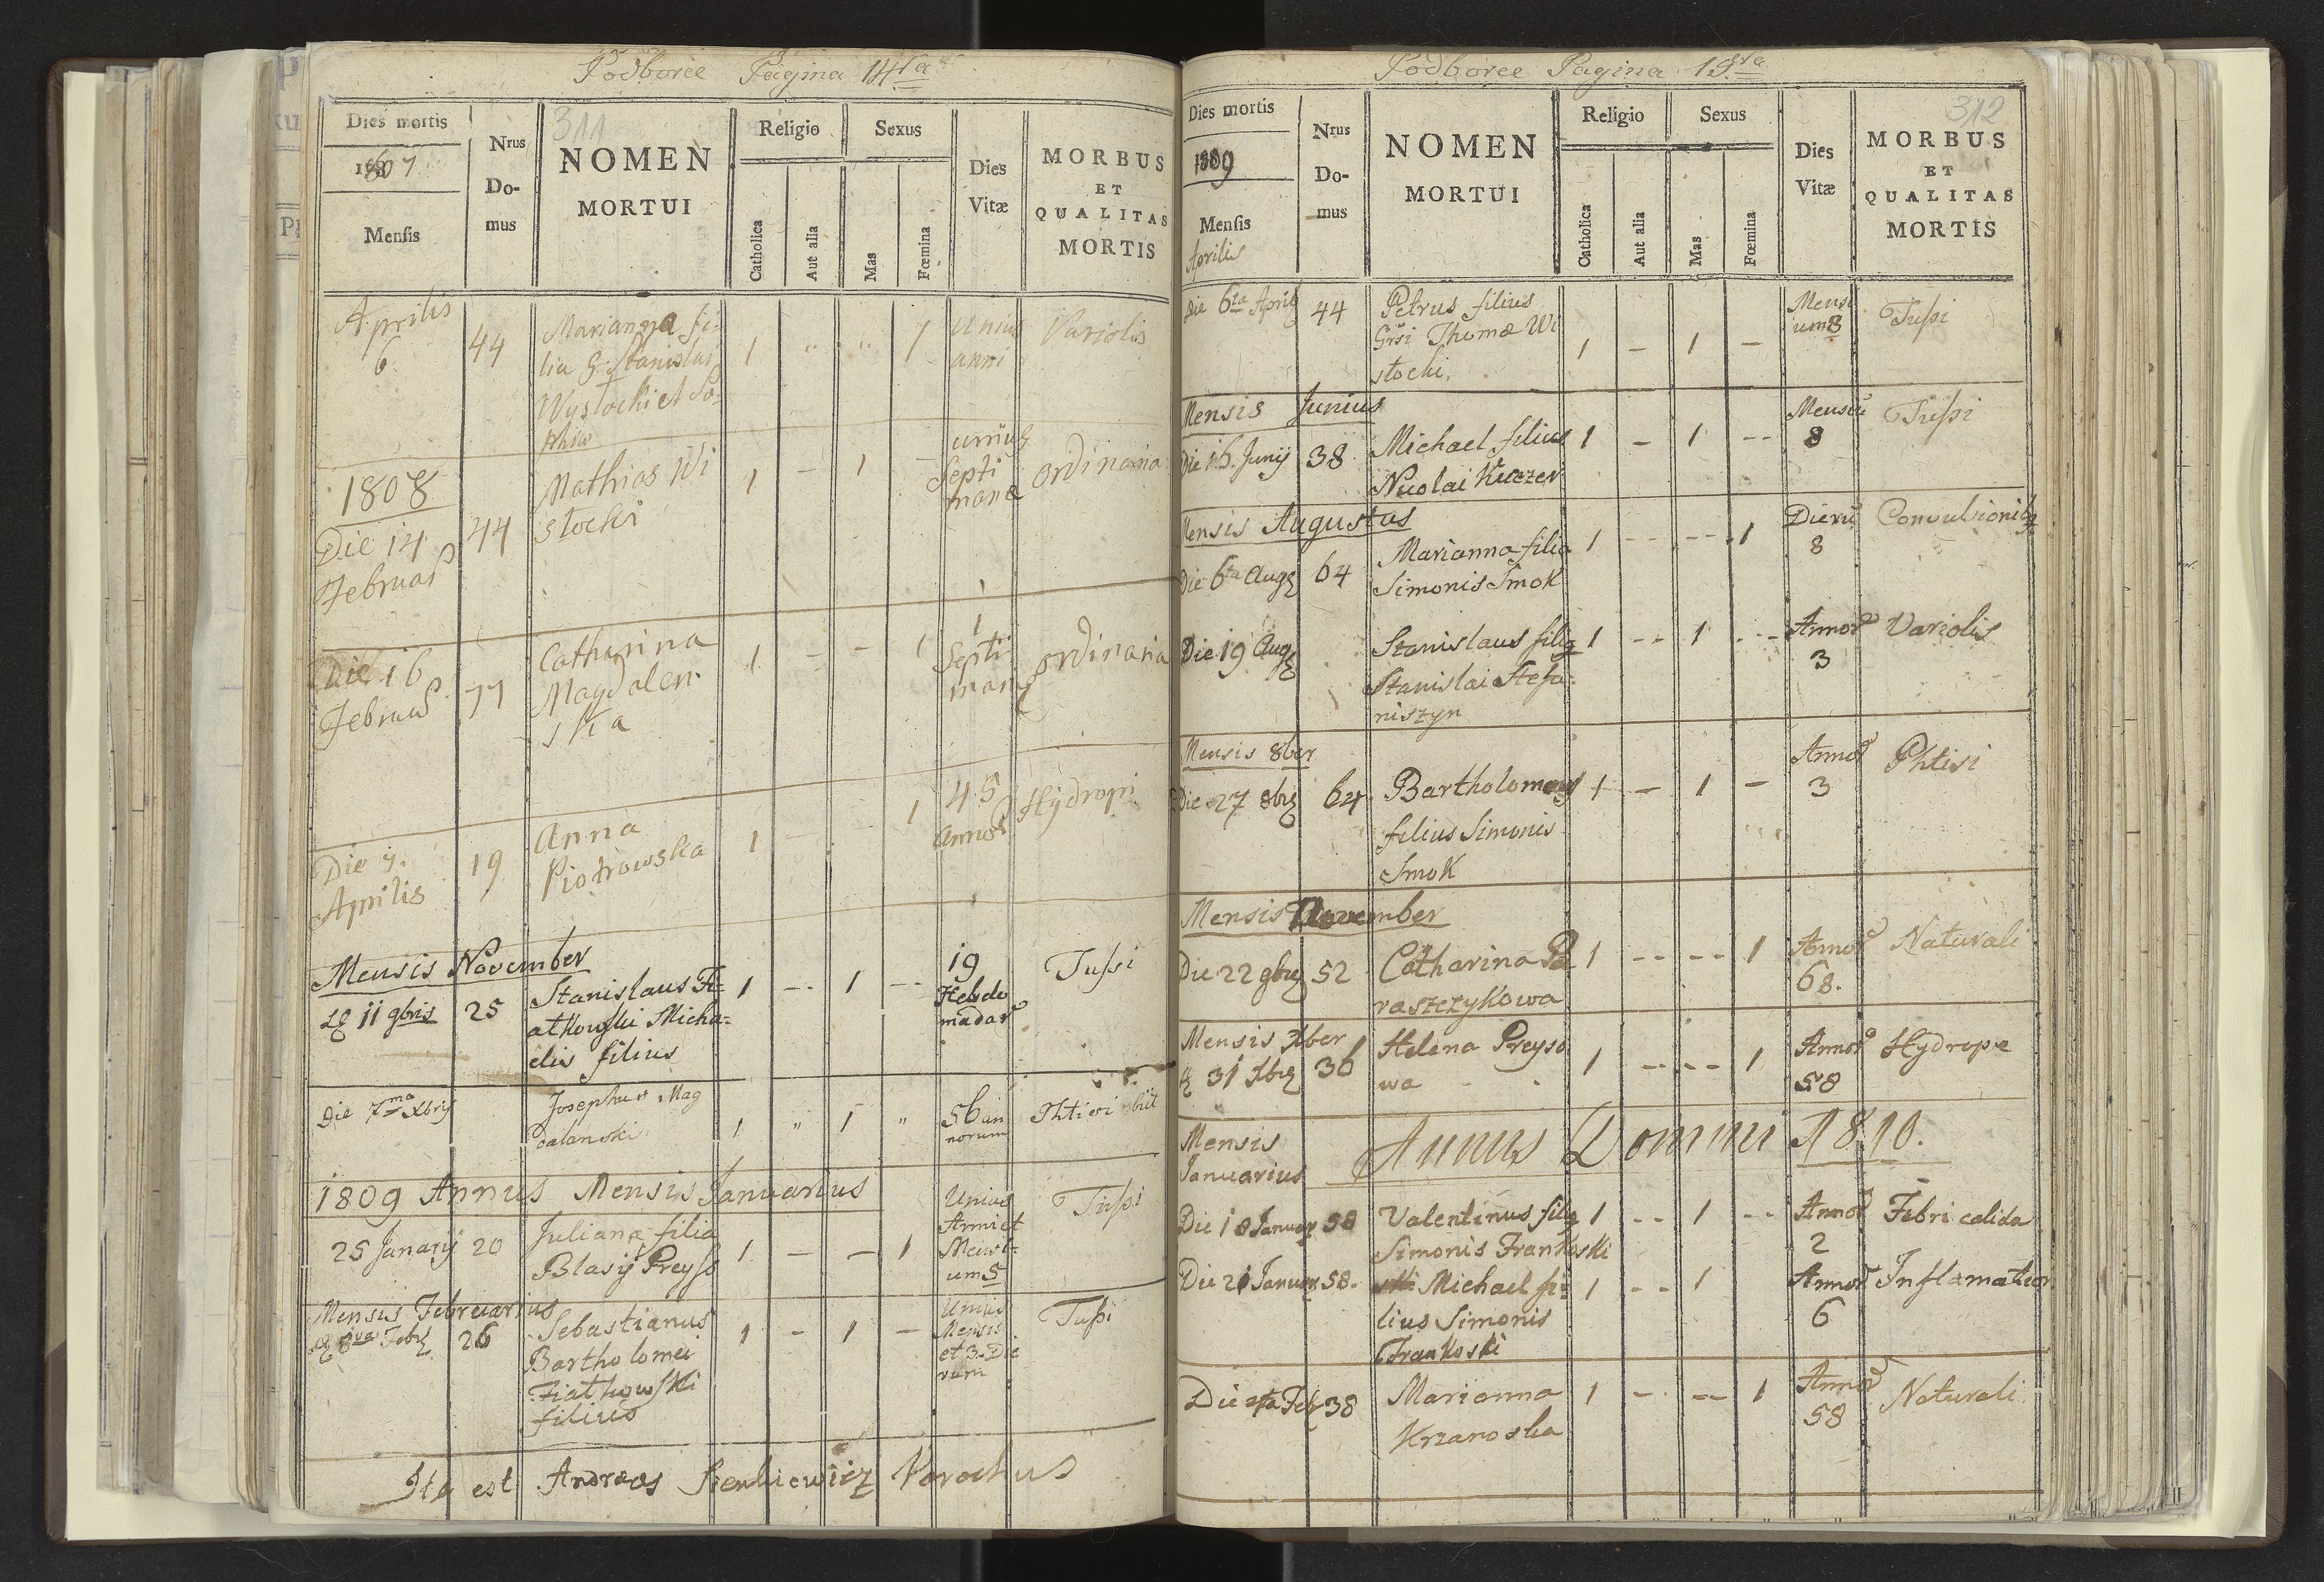 Podborce Pagina 14ta
311
Dies mortis
1807
Mensis
Nrus
Do-
mus
NOMEN
MORTUI
Religio
Catholica
Aut alia
Sexus
Mas
Fœmina
Dies
Vitæ
MORBUS
ET
QUALITAS
MORTIS
Aprilis
6
44
Marianna fi-
lia G. Stanislai
Wystocki et So-
phiæ
1 " " 1
Unius
anni
Variolis
1808
Die 14
Februar
44
Mathias Wi
stocki
1 - 1 -
unius
Septi
mane
ordinaria
Die 16
Februar
77
Catharina
Magdalen
ska
1 - - 1
1
Septi
man
ordinaria
Die 7.
Aprilis
19
Anna
Piotrowska
1 - - 1
45
annor
Hydropi
Mensis November
11 gbris
25
Stanislaus Fi-
atkowski Micha-
elis filius
1 -- 1 --
19
Hebdo
madar
Tussi
Die 7ma Xbris
Josephus Mag
dalanski
1 " 1 "
56 an
norum
Phtisi
1809 Annus Mensis Januarius
25 Janarij
20
Juliana filia
Blasij Preyso
1 - - 1
Unius
Anni et
Mensi-
um 5
Tussi
Mensis Februarius
8va Febr
26
Sebastianus
Bartholomei
Fiatkowski
filius
1 - 1 -
Unius
Mensis
et 3. Die
rum
Tussi
Ita est Andreas Sienkiewicz Parochus
Podborce Pagina 15ta
312
Dies mortis
1809
Mensis
Aprilis
Nrus
Do-
mus
NOMEN
MORTUI
Religio
Catholica
Aut alia
Sexus
Mas
Fœmina
Dies
Vitæ
MORBUS
ET
QUALITAS
MORTIS
Die 6ta April
44
Petrus filius
Grsi Thomæ Wi
stocki.
1 - 1 -
Mensi
um 8
Tussi
Mensis Junius
Die 16. Junij
38
Michael filius
Nicolai Kuczer
1 - 1 --
Mensiu
8
Tussi
Mensis Augustus
Die 6ta Aug
64
Marianna filia
Simonis Smok
1 -- -- 1
Dieru
8
Convulsionib
Die 19 Aug
Stanislaus fili
Stanislai Stefa-
niszyn
1 -- 1 --
Annor
3
Variolis
Mensis 8ber
Die 27 8br
64
Bartholomeus
filius Simonis
Smok
1 - 1 -
Annor
3
Phtisi
Mensis November
Die 22 gbr
52
Catharina Pa
raszczykowa
1 -- -- 1
Annor
68.
Naturali
Mensis Xber
31 Xbr
36
Helena Preyso
wa
1 -- -- 1
Annor
58
Hydrope
Mensis
Januarius
Annus Domini 1810.
Die 18 Januar
58
Valentinus fili
Simonis Frankoski
1 -- 1 --
Annor
2
Febri calida
Die 21 Januar
58.
Michael fi-
lius Simonis
Frankoski
1 -- 1
Annor
6
Inflamation
Die Feb
38
Marianna
Krzanoska
1 - -- 1
Annor
58
Naturali